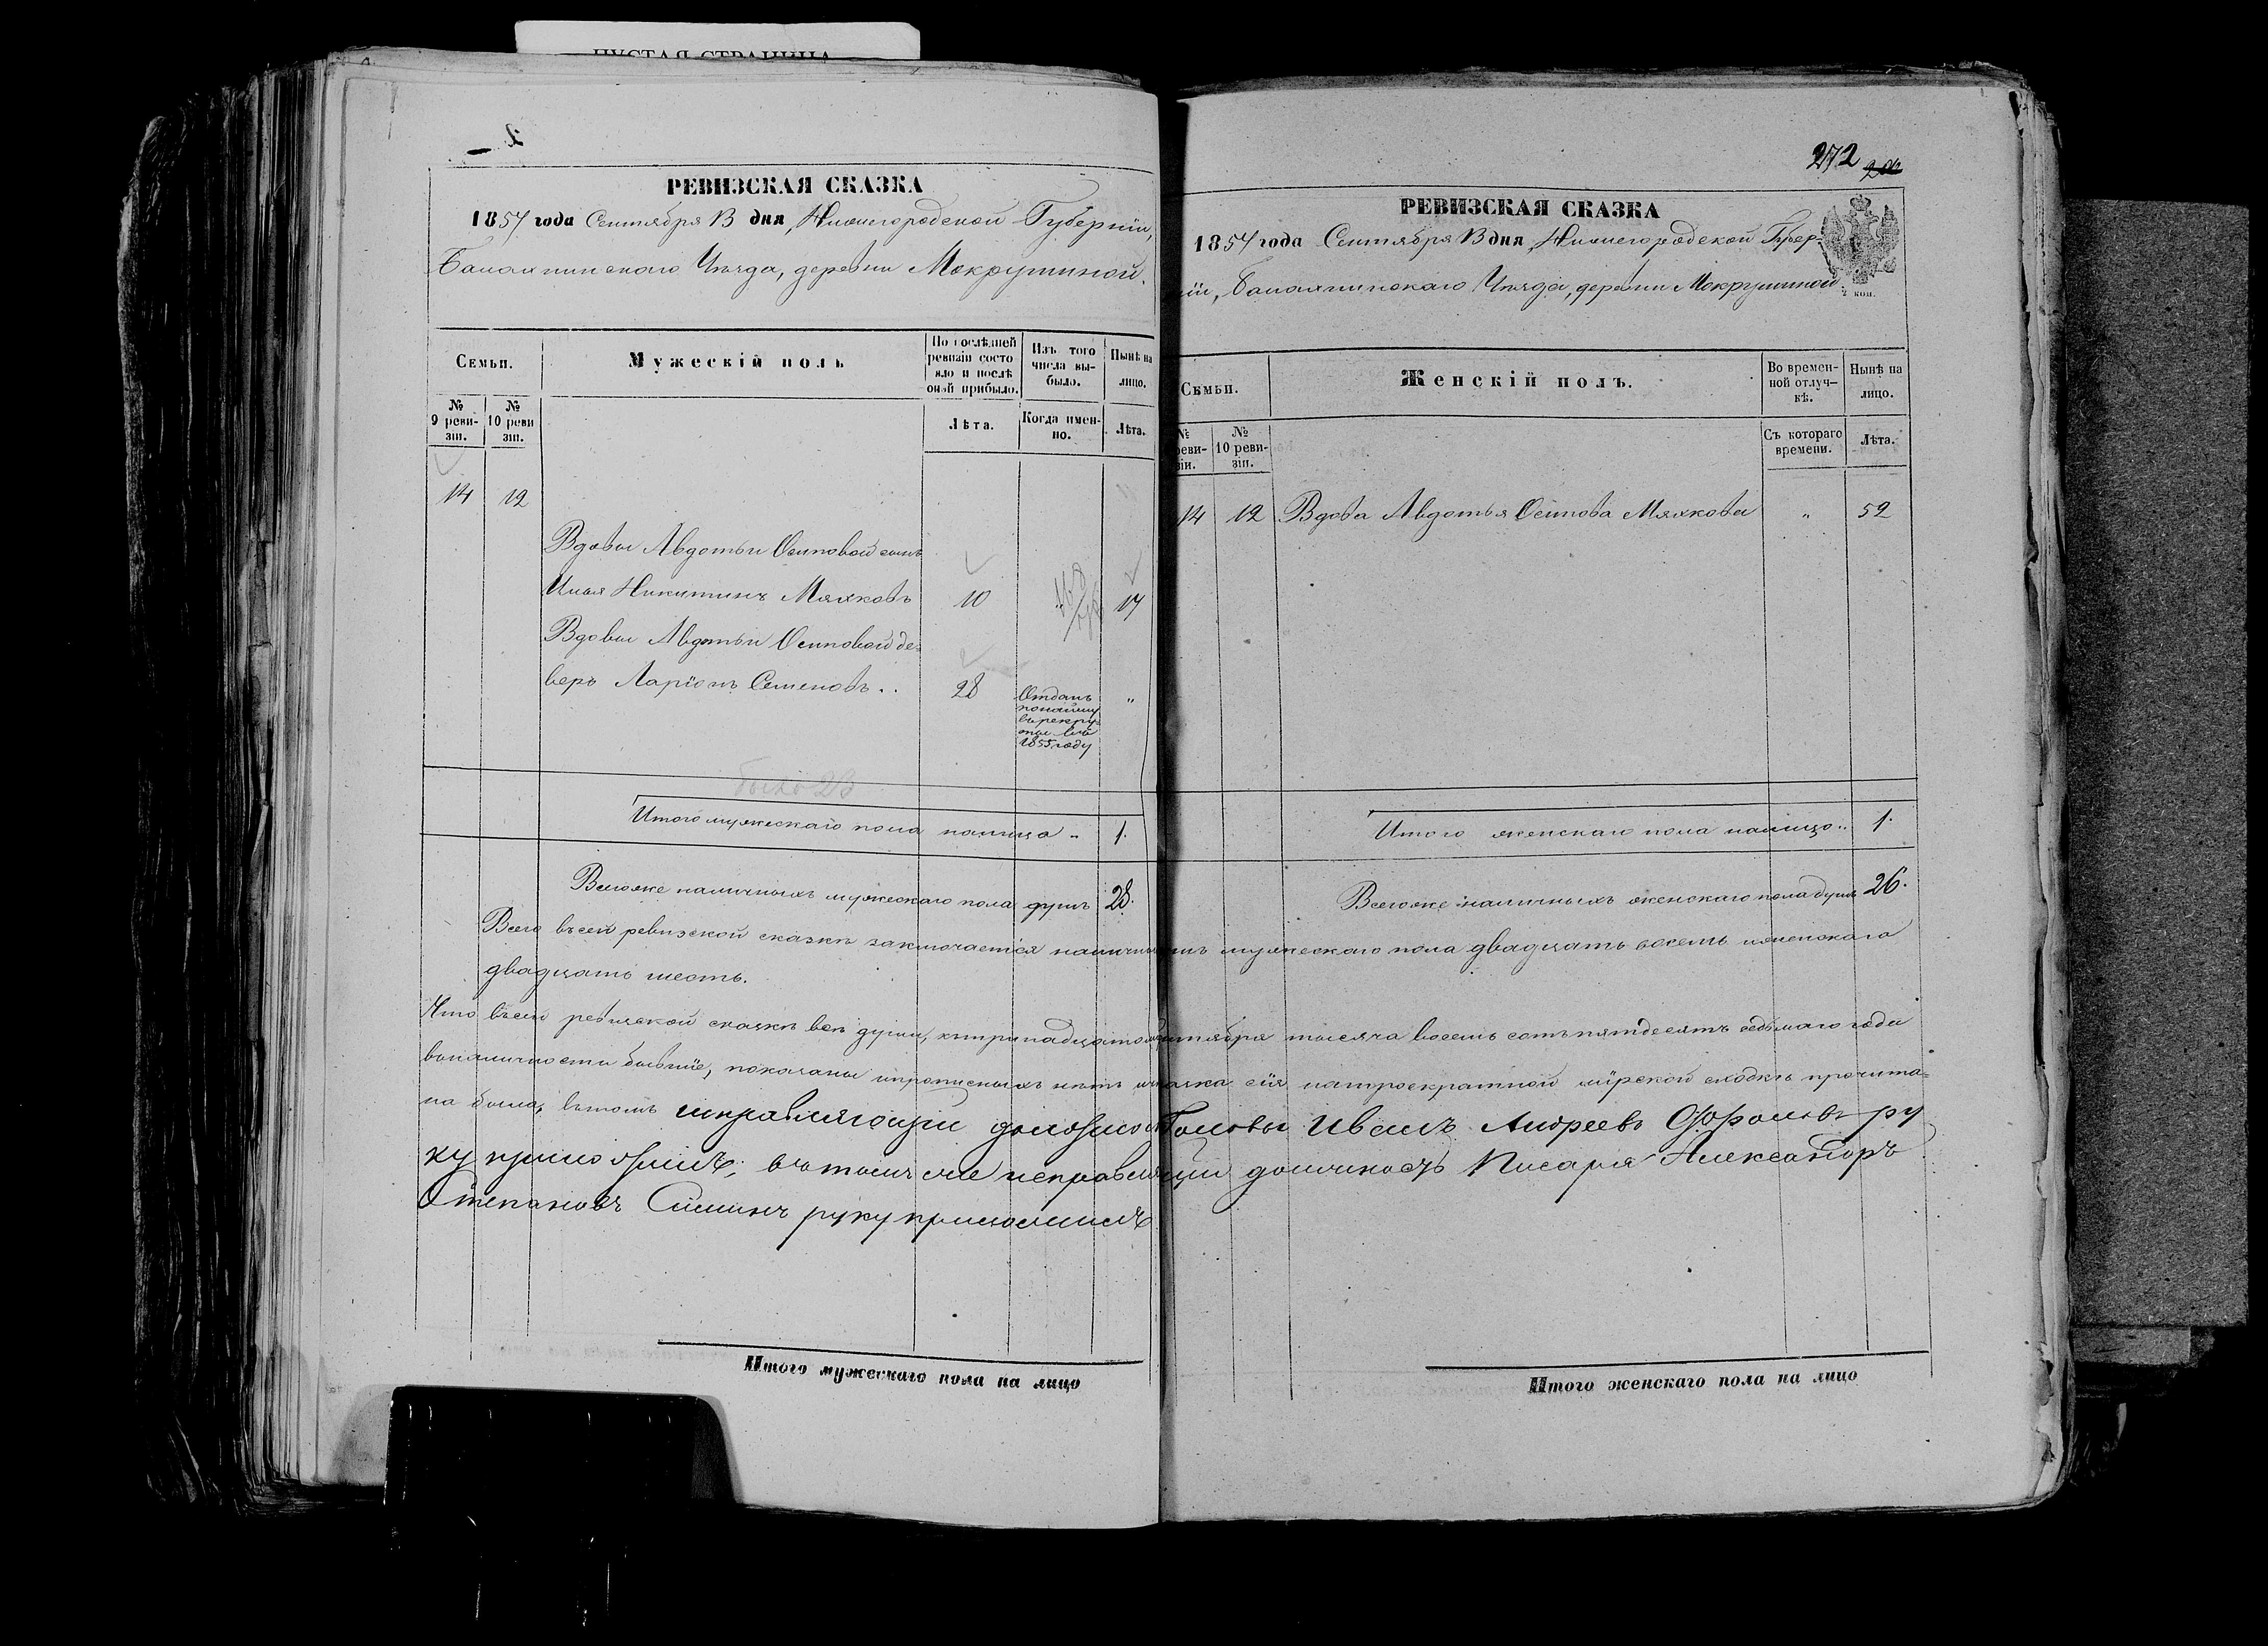 ПУСТАЯ СТРАНИЦА
РЕВИЗСКАЯ СКАЗКА
1857 года Сентября 13 дня, Нижегородской Губерніи,
Балахнинскаго Уѣзда, деревни Мокрушиной.
Семьи.
Мужескій полъ
По послѣдней ревизіи состояло и послѣ оной прибыло.
Изъ того числа выбыло.
Нынѣ на лицо.
№ 9 ревизіи.
№ 10 ревизіи.
Лѣта.
Когда именно.
Лѣта.
14 12
Вдовы Авдотьи Осиповой сынъ
Илья Никитинъ Мялковъ 10 „ 17
Вдовы Авдотьи Осиповой де-
верь Ларіонъ Семеновъ . . 28 „
Отданъ
по найму
въ рекру-
ты въ
1855 году
было 23
Итого мужескаго пола налицо .. 1.
Всего же наличныхъ мужескаго пола душъ 28.
272
РЕВИЗСКАЯ СКАЗКА
1857 года Сентября 13 дня, Нижегородской Губер-
ніи, Балахнинскаго Уѣзда, деревни Мокрушиной
коп.
Семьи.
Женскій полъ.
Во временной отлучкѣ.
Нынѣ на лицо.
№ ревизіи.
№ 10 ревизіи.
Съ котораго времени.
Лѣта.
14 12 Вдова Авдотья Осипова Мялкова „ 52
Итого женскаго пола налицо .. 1.
Всего же наличныхъ женскаго пола душъ 26.
Всего въ сей ревизской сказкѣ заключается наличныхъ мужескаго пола двадцать восемь и женскаго
двадцать шесть.
Что въ сей ревизской сказкѣ всѣ души, к тринадцатому Сентября тысяча восемь сотъ пятьдесятъ седьмаго года
въ наличности бывшіе, показаны и прописныхъ нѣтъ и сказка сія на троекратной мірской сходкѣ прочита-
на была, въ томъ исправляющій должность Головы Иванъ Андреевъ ру
ку приложилъ; въ томъ же исправляющій должность Писаря Александръ
Степановъ руку приложилъ
Итого мужескаго пола на лицо
Итого женскаго пола на лицо